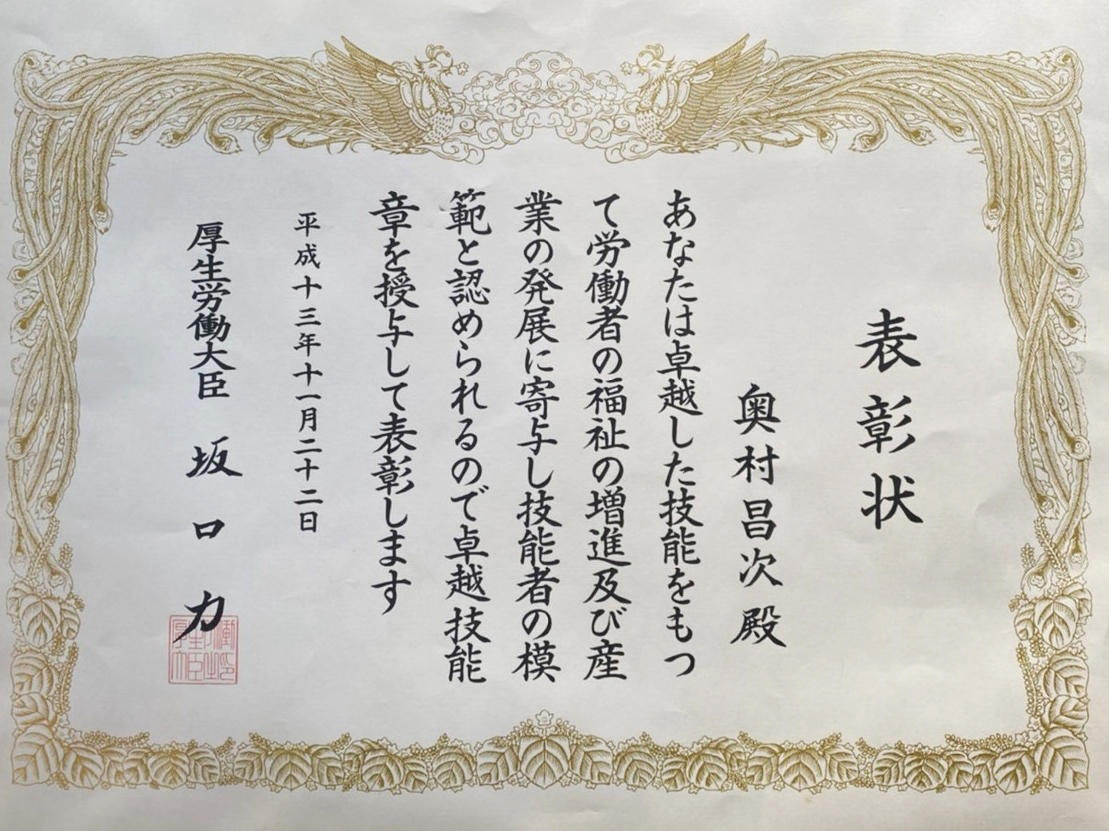 表彰状
奥村昌次殿
あなたは卓越した技能をもつ
て労働者の福祉の増進及び産
業の発展に寄与し技能者の模
範と認められるので卓越技能
章を授与して表彰します
平成十三年十一月二十二日
厚生労働大臣 坂口力